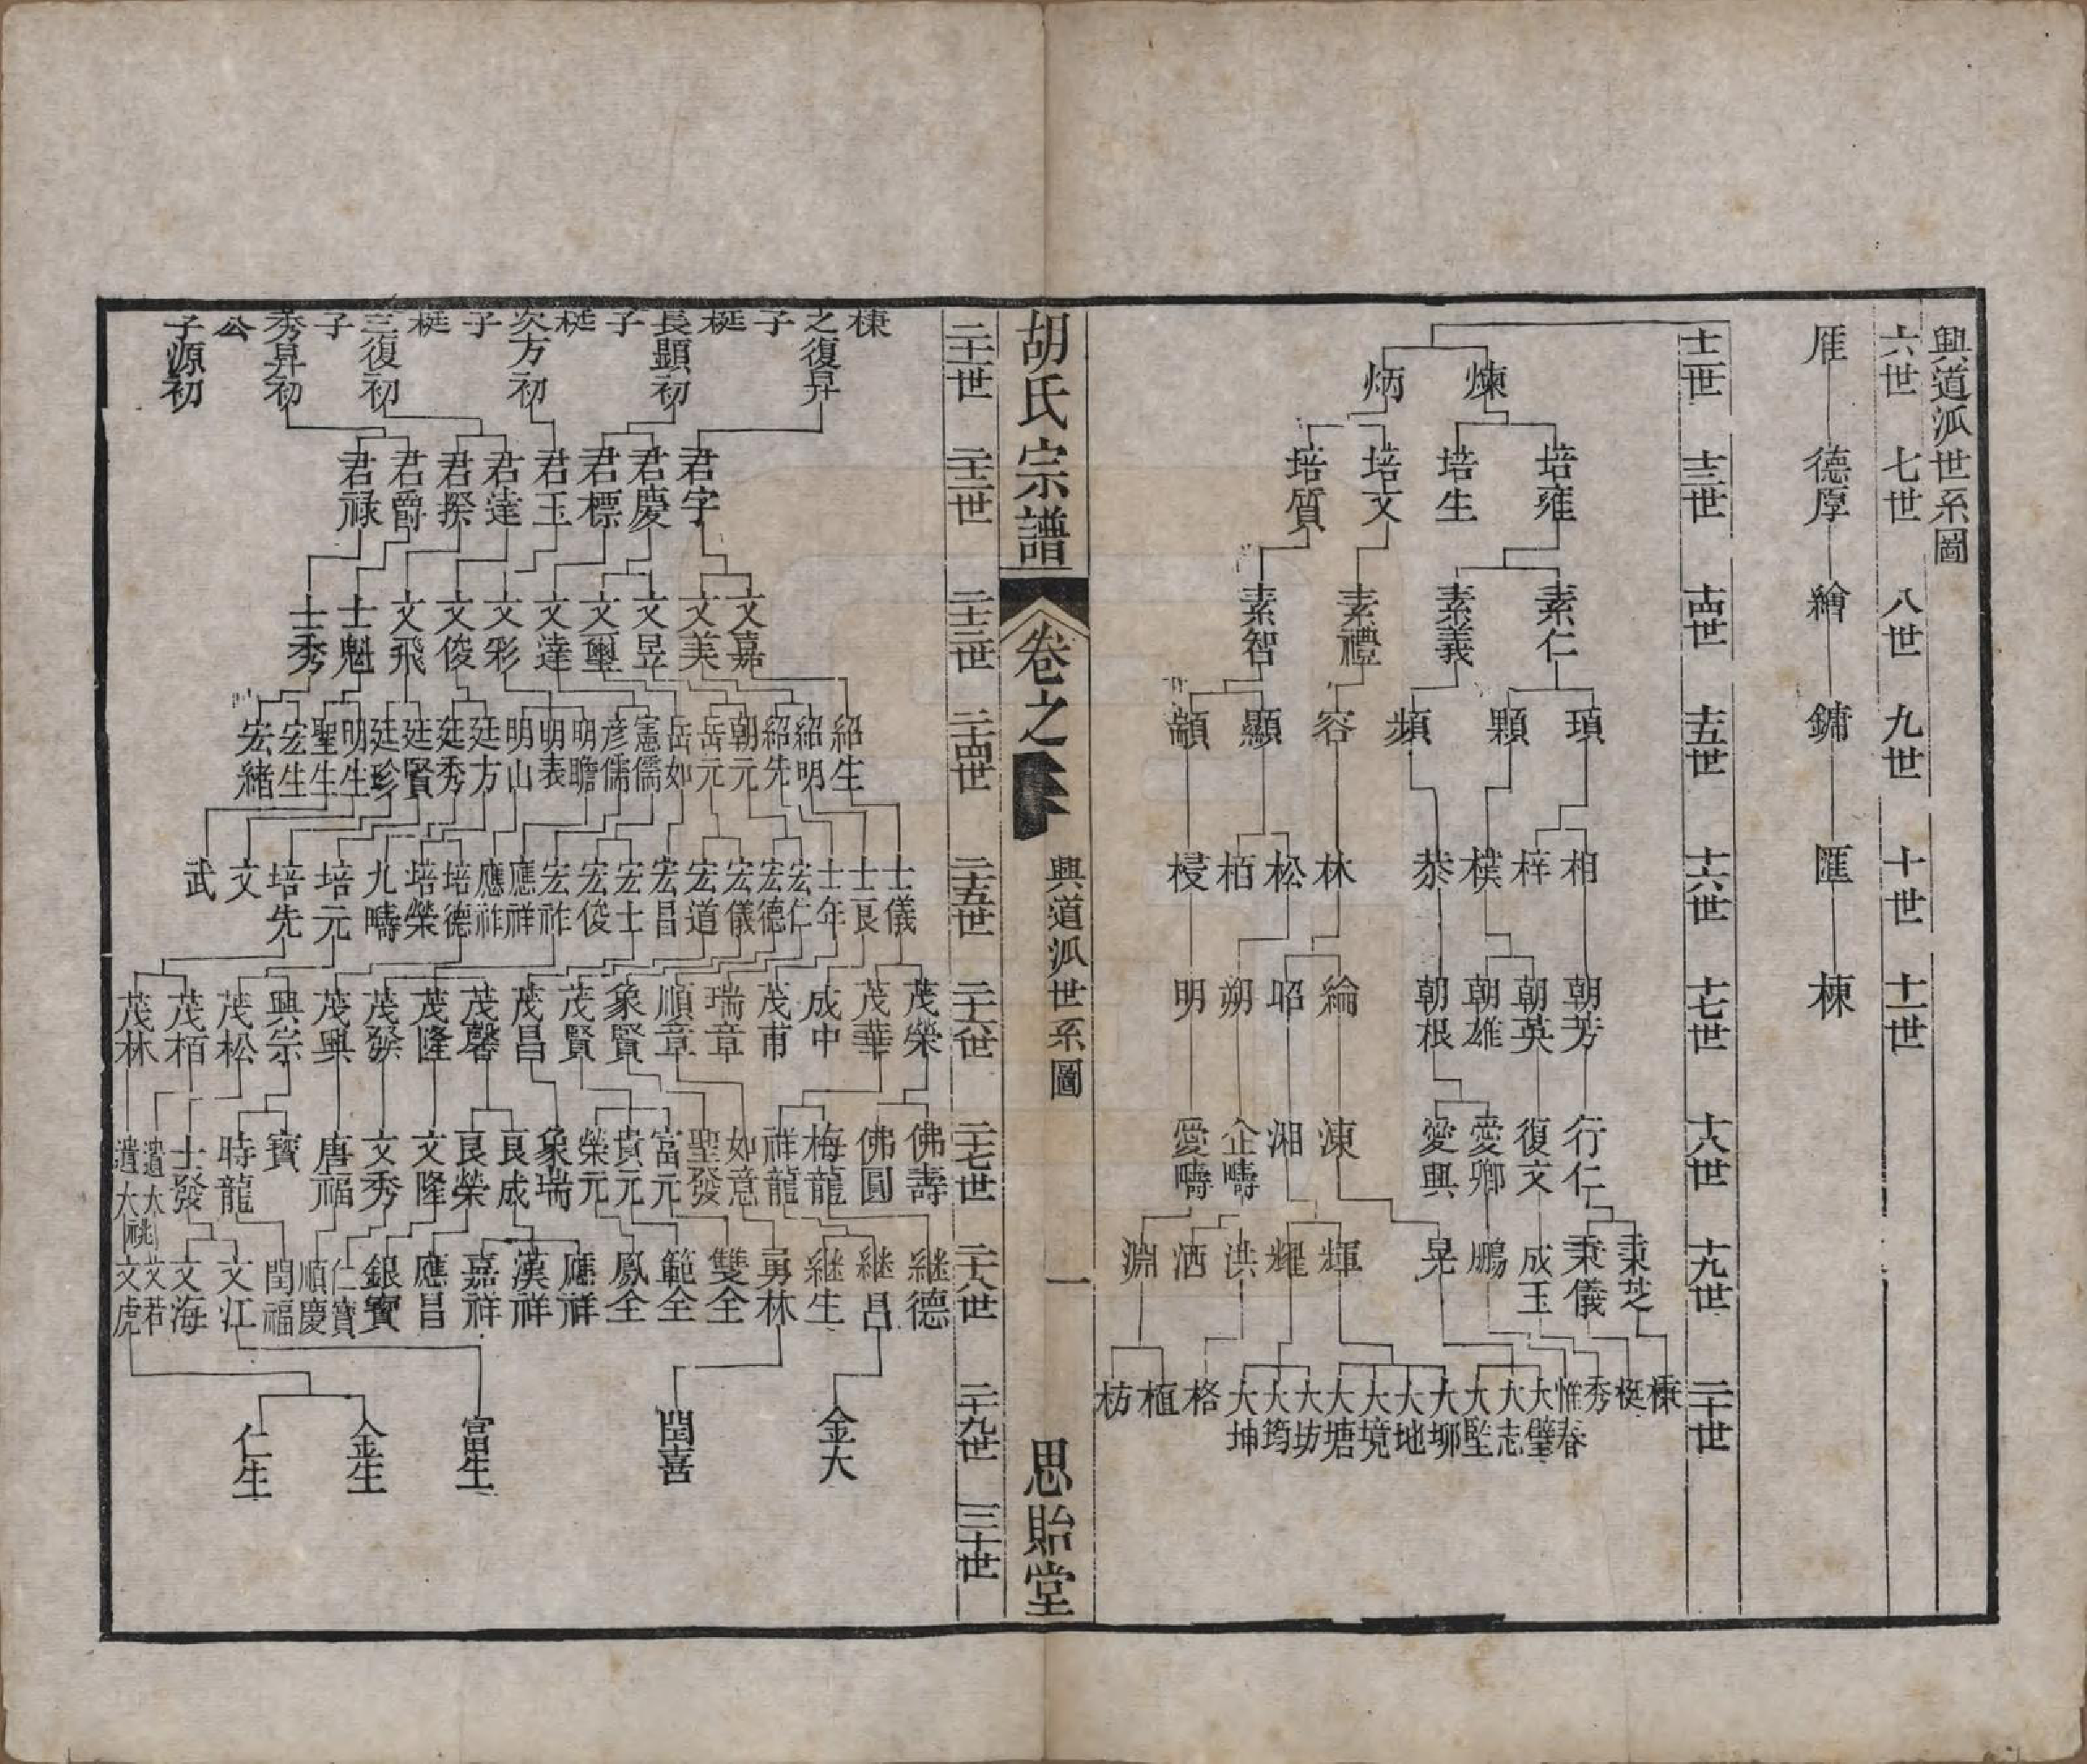 興道派世系圖
六世 七世 八世 九世 十世 十一世
厓 德厚 繪 鏞 匯 楝
十二世 十三世 十四世 十五世 十六世 十七世 十八世 十九世 二十世
煉 炳
培雍 培生 培文 培質
素仁 素義 素禮 素智
頊 顆 頻 容 顯 顓
相 梓 樸 恭 林 松 栢 梫
朝芳 朝英 朝雄 朝根 綸 昭 朔 明
行仁 復文 愛卿 愛興 涷 湘 企疇 愛疇
秉芝 秉儀 成玉 鵬 晃 輝 耀 洪 洒 淵
棟 梃 秀 惟春 大璧 大志 大堅 大埛 大地 大境 大塘 大坊 大筠 大坤 格 植 枋
胡氏宗譜 卷之 興道派世系圖 一 思貽堂
二十一世 二十二世 二十三世 二十四世 二十五世 二十六世 二十七世 二十八世 二十九世 三十世
棟之子復昇 梃子長顯初 梃子次方初 梃子三復初 子秀昇初 公子源初
君字 君慶 君標 君玉 君達 君揆 君爵 君祿
文嘉 文美 文昱 文璽 文達 文彩 文俊 文飛 士魁 士秀
紹生 紹明 紹先 朝元 岳元 岳如 憲儒 彥儒 明瞻 明表 明山 廷方 廷秀 廷賢 廷珍 明生 聖生 宏生 宏緒
士儀 士良 士年 宏仁 宏德 宏儀 宏道 宏昌 宏士 宏俊 宏祚 應祥 應祚 培德 培榮 九疇 培元 培先 文 武
茂榮 茂華 成中 茂甫 瑞章 順章 象賢 茂賢 茂昌 茂馨 茂隆 茂發 茂興 興宗 茂松 茂栢 茂林
佛壽 佛圓 梅龍 祥龍 如意 聖發 富元 貴元 榮元 象瑞 良成 良榮 文隆 文秀 唐福 寶 時龍 士發 遺大 遺大 祧
継德 継昌 継生 勇林 雙全 範全 鳳全 應祥 漢祥 嘉祥 應昌 銀寶 仁寶 順慶 閏福 文江 文海 文若 文虎
金大 閏喜 富生 金生 仁生